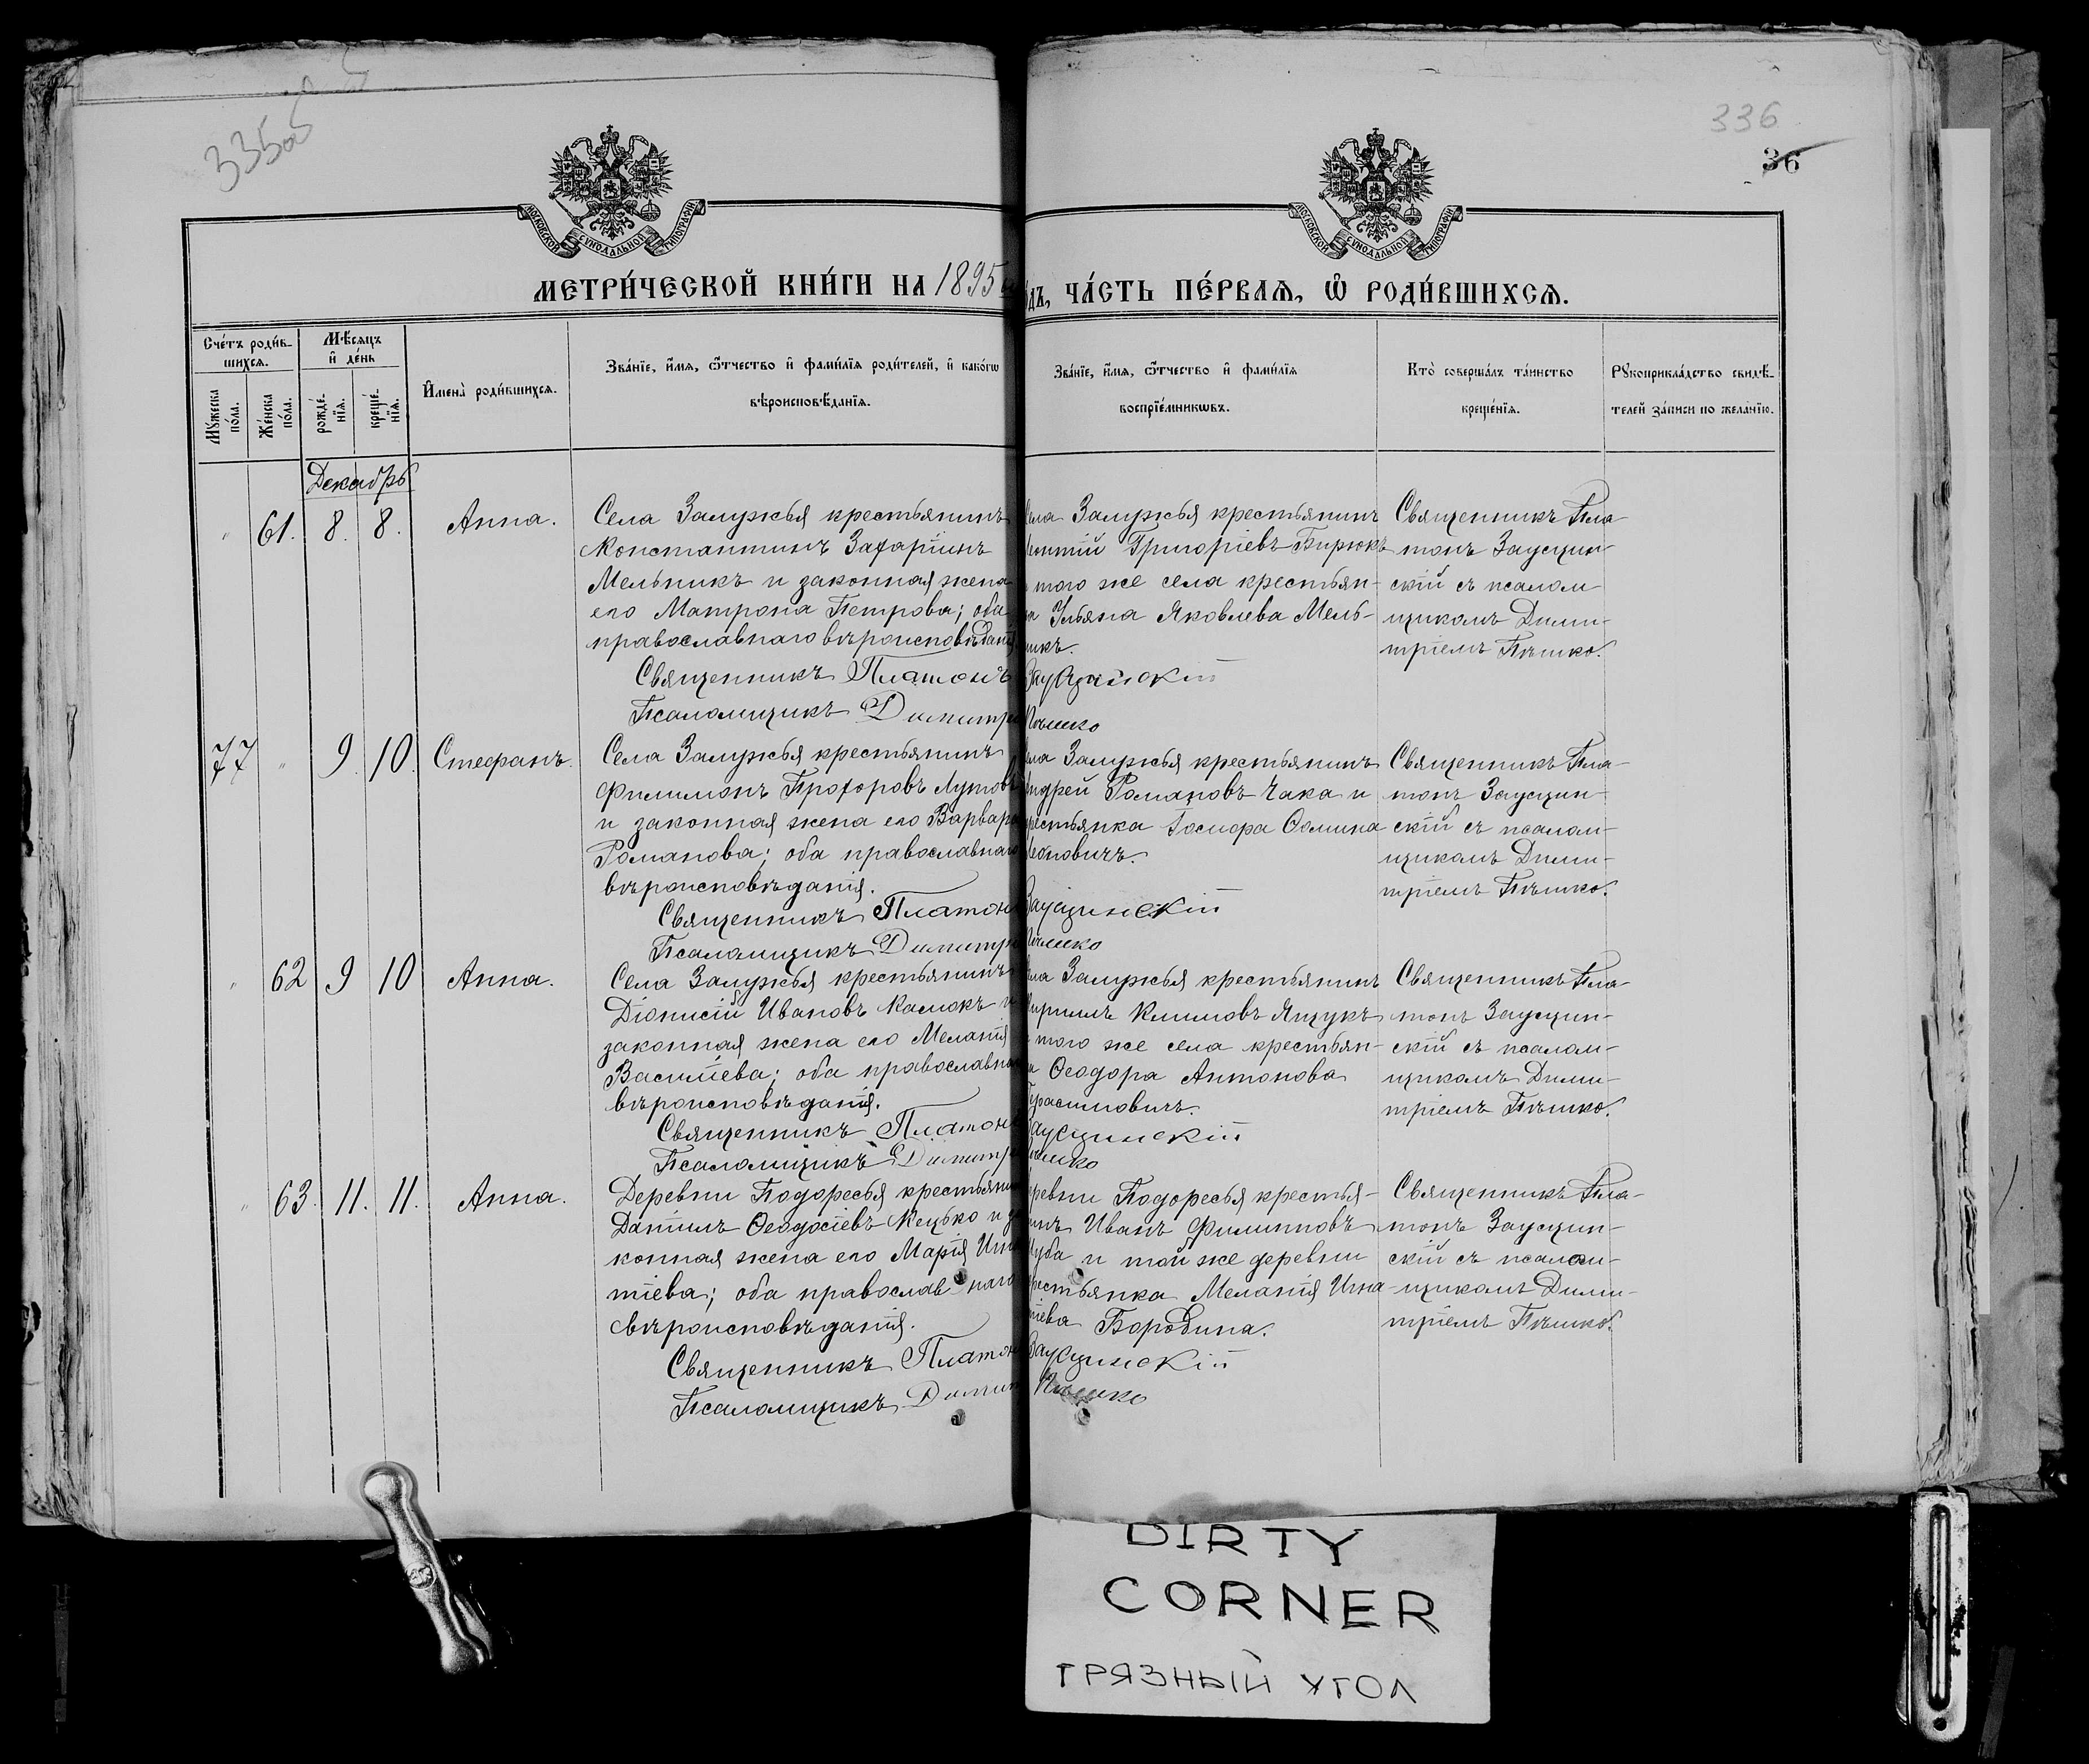 335об
336
36
МОСКОВСКОЙ СѴНОДАЛЬНОЙ ТИПОГРАФІИ
МОСКОВСКОЙ СѴНОДАЛЬНОЙ ТИПОГРАФІИ
МЕТРИ́ЧЕСКОЙ КНИ́ГИ НА 1895
дъ, ЧА́СТЬ ПЕ́РВАѦ, Ѡ҆ РОДИ́ВШИХСѦ.
Сче́тъ роди́в-
шихсѧ.
Мꙋ́жеска по́ла.
Же́нска по́ла.
Мѣ́сѧцъ и҆ де́нь
рожде́-нїѧ.
креще́-нїѧ.
И҆мена̀ роди́вшихсѧ.
Зва́нїе, и҆́мѧ, ѻ҆́тчество и҆ фами́лїѧ роди́телей, и҆ како́гѡ
вѣроисповѣ́данїѧ.
Зва́нїе, и҆́мѧ, ѻ҆́тчество и҆ фами́лїѧ
воспрїе́мникѡвъ.
Кто̀ соверша́лъ та́инство
креще́нїѧ.
Рꙋкоприкла́дство свидѣ́-
телей за́писи по жела́нїю.
Декабрь
" 61. 8. 8. Анна.
Села Залужья крестьянинъ
Константинъ Захаріинъ
Мельникъ и законная жена
его Матрона Петрова; оба
православнаго вѣроисповѣданія.
Священникъ Платонъ
Псаломщикъ Димитрі
ела Залужья крестьянинъ
Григоріевъ Бирюкъ
того же села крестьян-
ка Ульяна Яковлева Мель-
никъ.
Заусцинскій
Пѣшко
Священникъ Пла-
тонъ Заусцин-
скій съ псалом-
щикомъ Дими-
тріемъ Пѣшко.
77 " 9. 10. Стефанъ.
Села Залужья крестьянинъ
Филимонъ Прохоровъ
и законная жена его Варвара
Романова; оба православнаго
вѣроисповѣданія.
Священникъ Платонъ
Псаломщикъ Димитрі
ела Залужья крестьянинъ
Андрей Романовъ Чака и
крестьянка Ѳомина
Заусцинскій
Пѣшко
Священникъ Пла-
тонъ Заусцин-
скій съ псалом-
щикомъ Дими-
тріемъ Пѣшко.
" 62 9 10 Анна.
Села Залужья крестьянинъ
Діонисій Ивановъ и
законная жена его Меланія
Василіева; оба православнаго
вѣроисповѣданія.
Священникъ Платонъ
Псаломщикъ Димитрі
ела Залужья крестьянинъ
Кириллъ Климовъ Ящукъ
того же села крестьян-
ка Ѳеодора Антонова
Герасимовичъ.
Заусцинскій
Пѣшко
Священникъ Пла-
тонъ Заусцин-
скій съ псалом-
щикомъ Дими-
тріемъ Пѣшко.
" 63. 11. 11. Анна.
Деревни Подоресья крестьянин
Даніилъ Ѳеодосіевъ Кецько и за
конная жена его Марія Игна
тіева; оба православнаго
вѣроисповѣданія.
Священникъ Платонъ
Псаломщикъ Димит
еревни Подоресья крестья-
нинъ Иванъ Филипповъ
и той же деревни
крестьянка Меланія Игна-
тіева Бородина.
Заусцинскій
Пѣшко
Священникъ Пла-
тонъ Заусцин-
скій съ псалом-
щикомъ Дими-
тріемъ Пѣшко.
DIRTY
CORNER
ГРЯЗНЫЙ УГОЛ